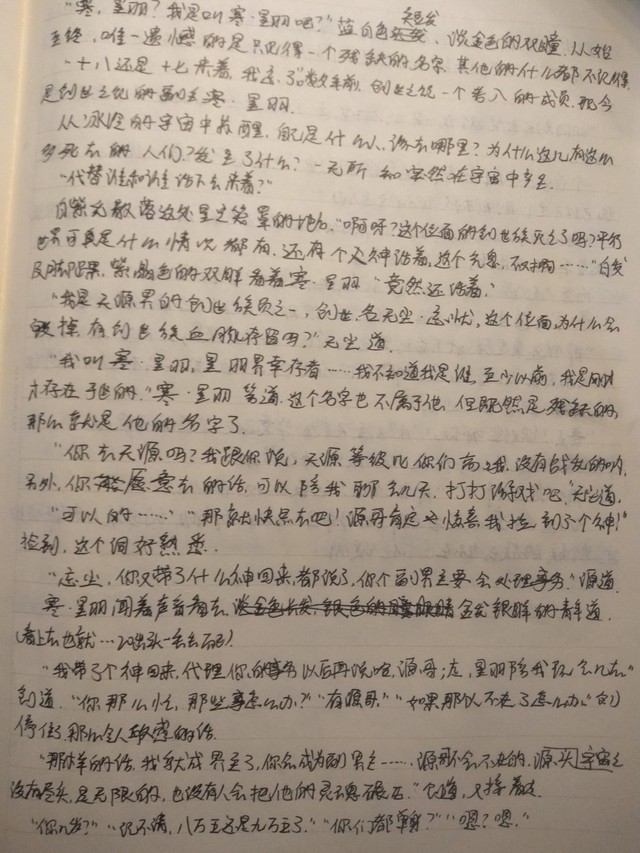 "寒,星羽?我是叫寒·星羽吧?"蓝白色长发、淡金色的双瞳,从始
至终,唯一遗憾的是只记得一个残缺的名字,其他的什么都不记得
"十八还是十七来着,我这 数年前,创世之饶一个老人的成员,现今
是创世之饶的副主寒·星羽.
从冰冷的宇宙中苏醒,自己是什么人,该去哪里?为什么这儿有这么
多死去的人们?发生了什么?一无所知突然在宇宙中多了
"代替谁和谁活下去来着?"
白紫光散落这处星之笼罩的地.."啊呀?这个位面的创世族灭了吗?平行
世界可真是什么情况都有,还有个人神活着,这个气息,不对啊……"白发
及脚踝,紫色的双眸看着寒·星羽"竟然还活着."
"我是天源界的创世族员之一,创世,名无尘·忘忧,这个位面为什么会
毁掉,有创世族血脉存留吗?"无尘道.
"我叫寒·星羽,星羽界幸存者……我不知道我是谁,至少以前,我是刚刚
才存在于世的."寒·星羽答道.这个名字也不属于他,但既然是残缺的,
那么就是他的名字了.
"你去天源吗?我跟你说,天源等级比你们高 ,没有战乱的哟,
另外,你愿意去的话,可以陪我聊几天,打打游戏吧."无尘道,
"可以的……""那就快点去吧!源哥肯定也惊喜我捡到了个神!"
捡到,这个词好熟悉..
"忘尘,你又带了什么神回来,都说了,你个副界主要会处理事务."源道.
寒·星羽闻着声音看去,金发银眸的青年道.
(看上去也就…20出头一丢丢不到)
"我带了个神回来,代理你的事务以后再说哈,源哥;走,星羽陪我玩会儿去."
 道."你那么忙,那些事怎么办?""有源哥.""如果那以不在了怎么办."
停住了,那么令人敏感的话.
"那样的话,我就成界主了,你会成为副界主……源哥不会不在的,源头宇宙是
没有尽头,是无限的,也没有人会把他的灵魂碾碎."尘道,又接着走.
"你几岁?""记不清,八万五还是九万五了.""你们都单身?""嗯?嗯."